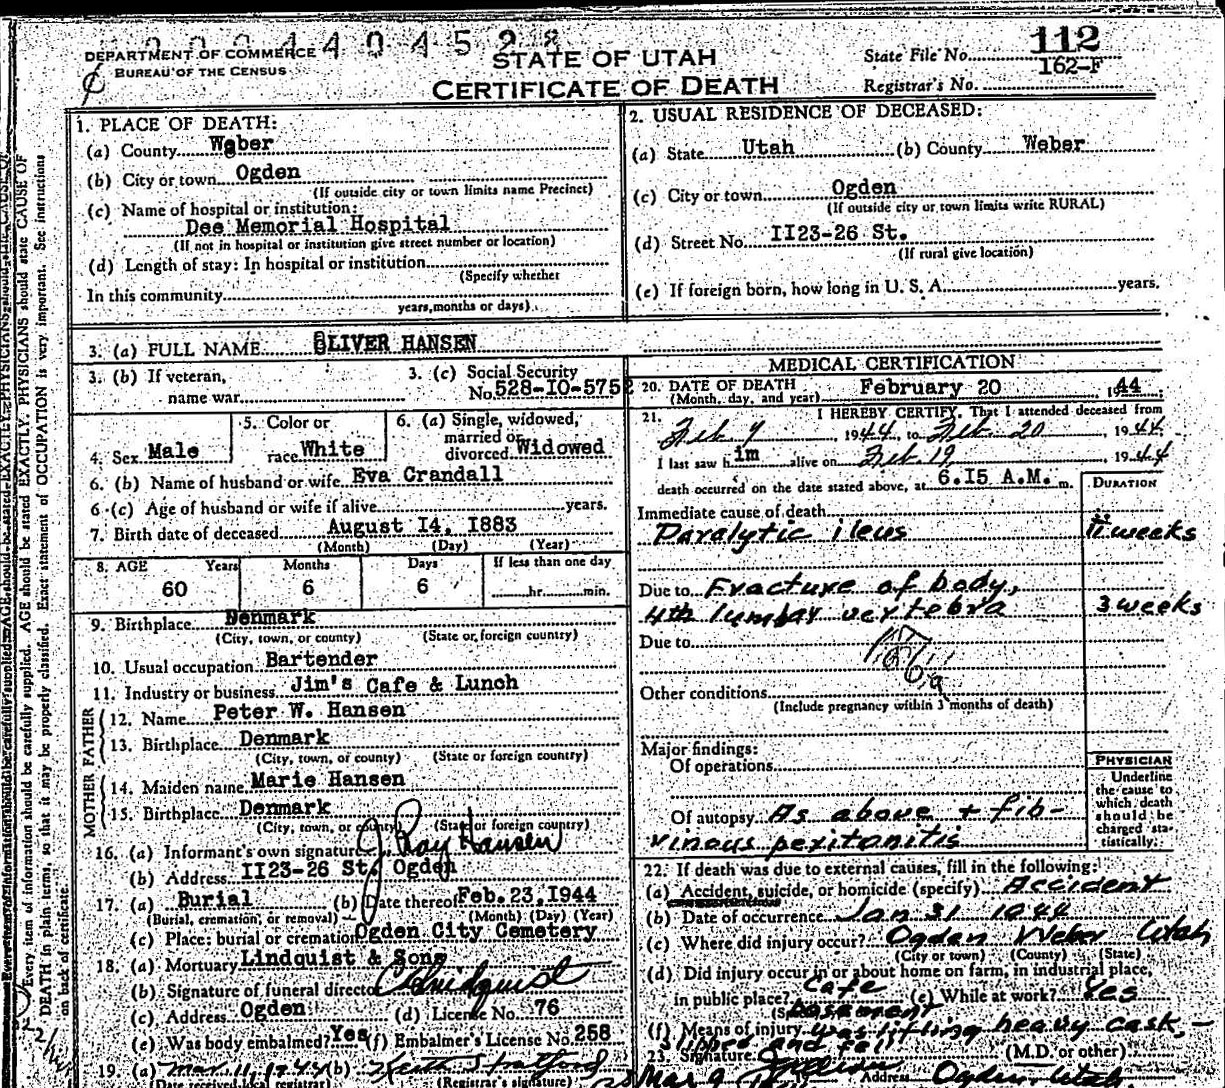 2 0 0 4 4 0 4 5 2 8
DEPARTMENT OF COMMERCE
BUREAU OF THE CENSUS
STATE OF UTAH
CERTIFICATE OF DEATH
State File No. 112
162-F
Registrar's No.
1. PLACE OF DEATH:
(a) County Weber
(b) City or town Ogden
(If outside city or town limits name Precinct)
(c) Name of hospital or institution:
Dee Memorial Hospital
(If not in hospital or institution give street number or location)
(d) Length of stay: In hospital or institution
(Specify whether
In this community
years, months or days)
2. USUAL RESIDENCE OF DECEASED:
(a) State Utah (b) County Weber
(c) City or town Ogden
(If outside city or town limits write RURAL)
(d) Street No. II23-26 St.
(If rural give location)
(e) If foreign born, how long in U. S. A. years.
3. (a) FULL NAME OLIVER HANSEN
3. (b) If veteran,
name war
3. (c) Social Security
No. 528-IO-5752
4. Sex Male
5. Color or
race White
6. (a) Single, widowed,
married or
divorced Widowed
6. (b) Name of husband or wife Eva Crandall
6 (c) Age of husband or wife if alive years.
7. Birth date of deceased August I4, I883
(Month) (Day) (Year)
8. AGE Years Months Days If less than one day
60 6 6 hr. min.
9. Birthplace Denmark
(City, town, or county) (State or foreign country)
10. Usual occupation Bartender
11. Industry or business Jim's Cafe & Lunch
FATHER
12. Name Peter W. Hansen
13. Birthplace Denmark
(City, town, or county) (State or foreign country)
MOTHER
14. Maiden name Marie Hansen
15. Birthplace Denmark
(City, town, or county) (State or foreign country)
16. (a) Informant's own signature J. Ray Hansen
(b) Address II23-26 St. Ogden
17. (a) Burial (b) Date thereof Feb. 23, 1944
(Burial, cremation, or removal) (Month) (Day) (Year)
(c) Place: burial or cremation Ogden City Cemetery
18. (a) Mortuary Lindquist & Sons
(b) Signature of funeral director Lindquist
(c) Address Ogden (d) License No. 76
(e) Was body embalmed? Yes (f) Embalmer's License No. 258
19. (a) Mar 11, 1944 (b) Keith Stratford
(Date received local registrar) (Registrar's signature)
MEDICAL CERTIFICATION
20. DATE OF DEATH February 20 1944
(Month, day, and year)
21. I HEREBY CERTIFY, That I attended deceased from
Feb 9, 1944, to Feb. 20, 1944
I last saw him alive on Feb. 19, 1944
death occurred on the date stated above, at 6.I5 A.M. m.
DURATION
Immediate cause of death
Paralytic ileus weeks
Due to Fracture of body,
4th lumbar vertebra 3 weeks
Due to
Other conditions
(Include pregnancy within 3 months of death)
Major findings:
Of operations
Of autopsy As above + fib-
rinous peritonitis
PHYSICIAN
Underline
the cause to
which death
should be
charged sta-
tistically.
22. If death was due to external causes, fill in the following:
(a) Accident, suicide, or homicide (specify) Accident
(b) Date of occurrence Jan 31 1944
(c) Where did injury occur? Ogden Weber Utah
(City or town) (County) (State)
(d) Did injury occur in or about home on farm, in industrial place,
in public place? Cafe basement (e) While at work? Yes
(f) Means of injury was lifting heavy cask, -
slipped and fell
23. Signature (M.D. or other)
Mar 9 Address Ogden, Utah
Every item of information should be carefully supplied. AGE should be stated EXACTLY. PHYSICIANS should state CAUSE OF
DEATH in plain terms, so that it may be properly classified. Exact statement of OCCUPATION is very important. See instructions
on back of certificate.